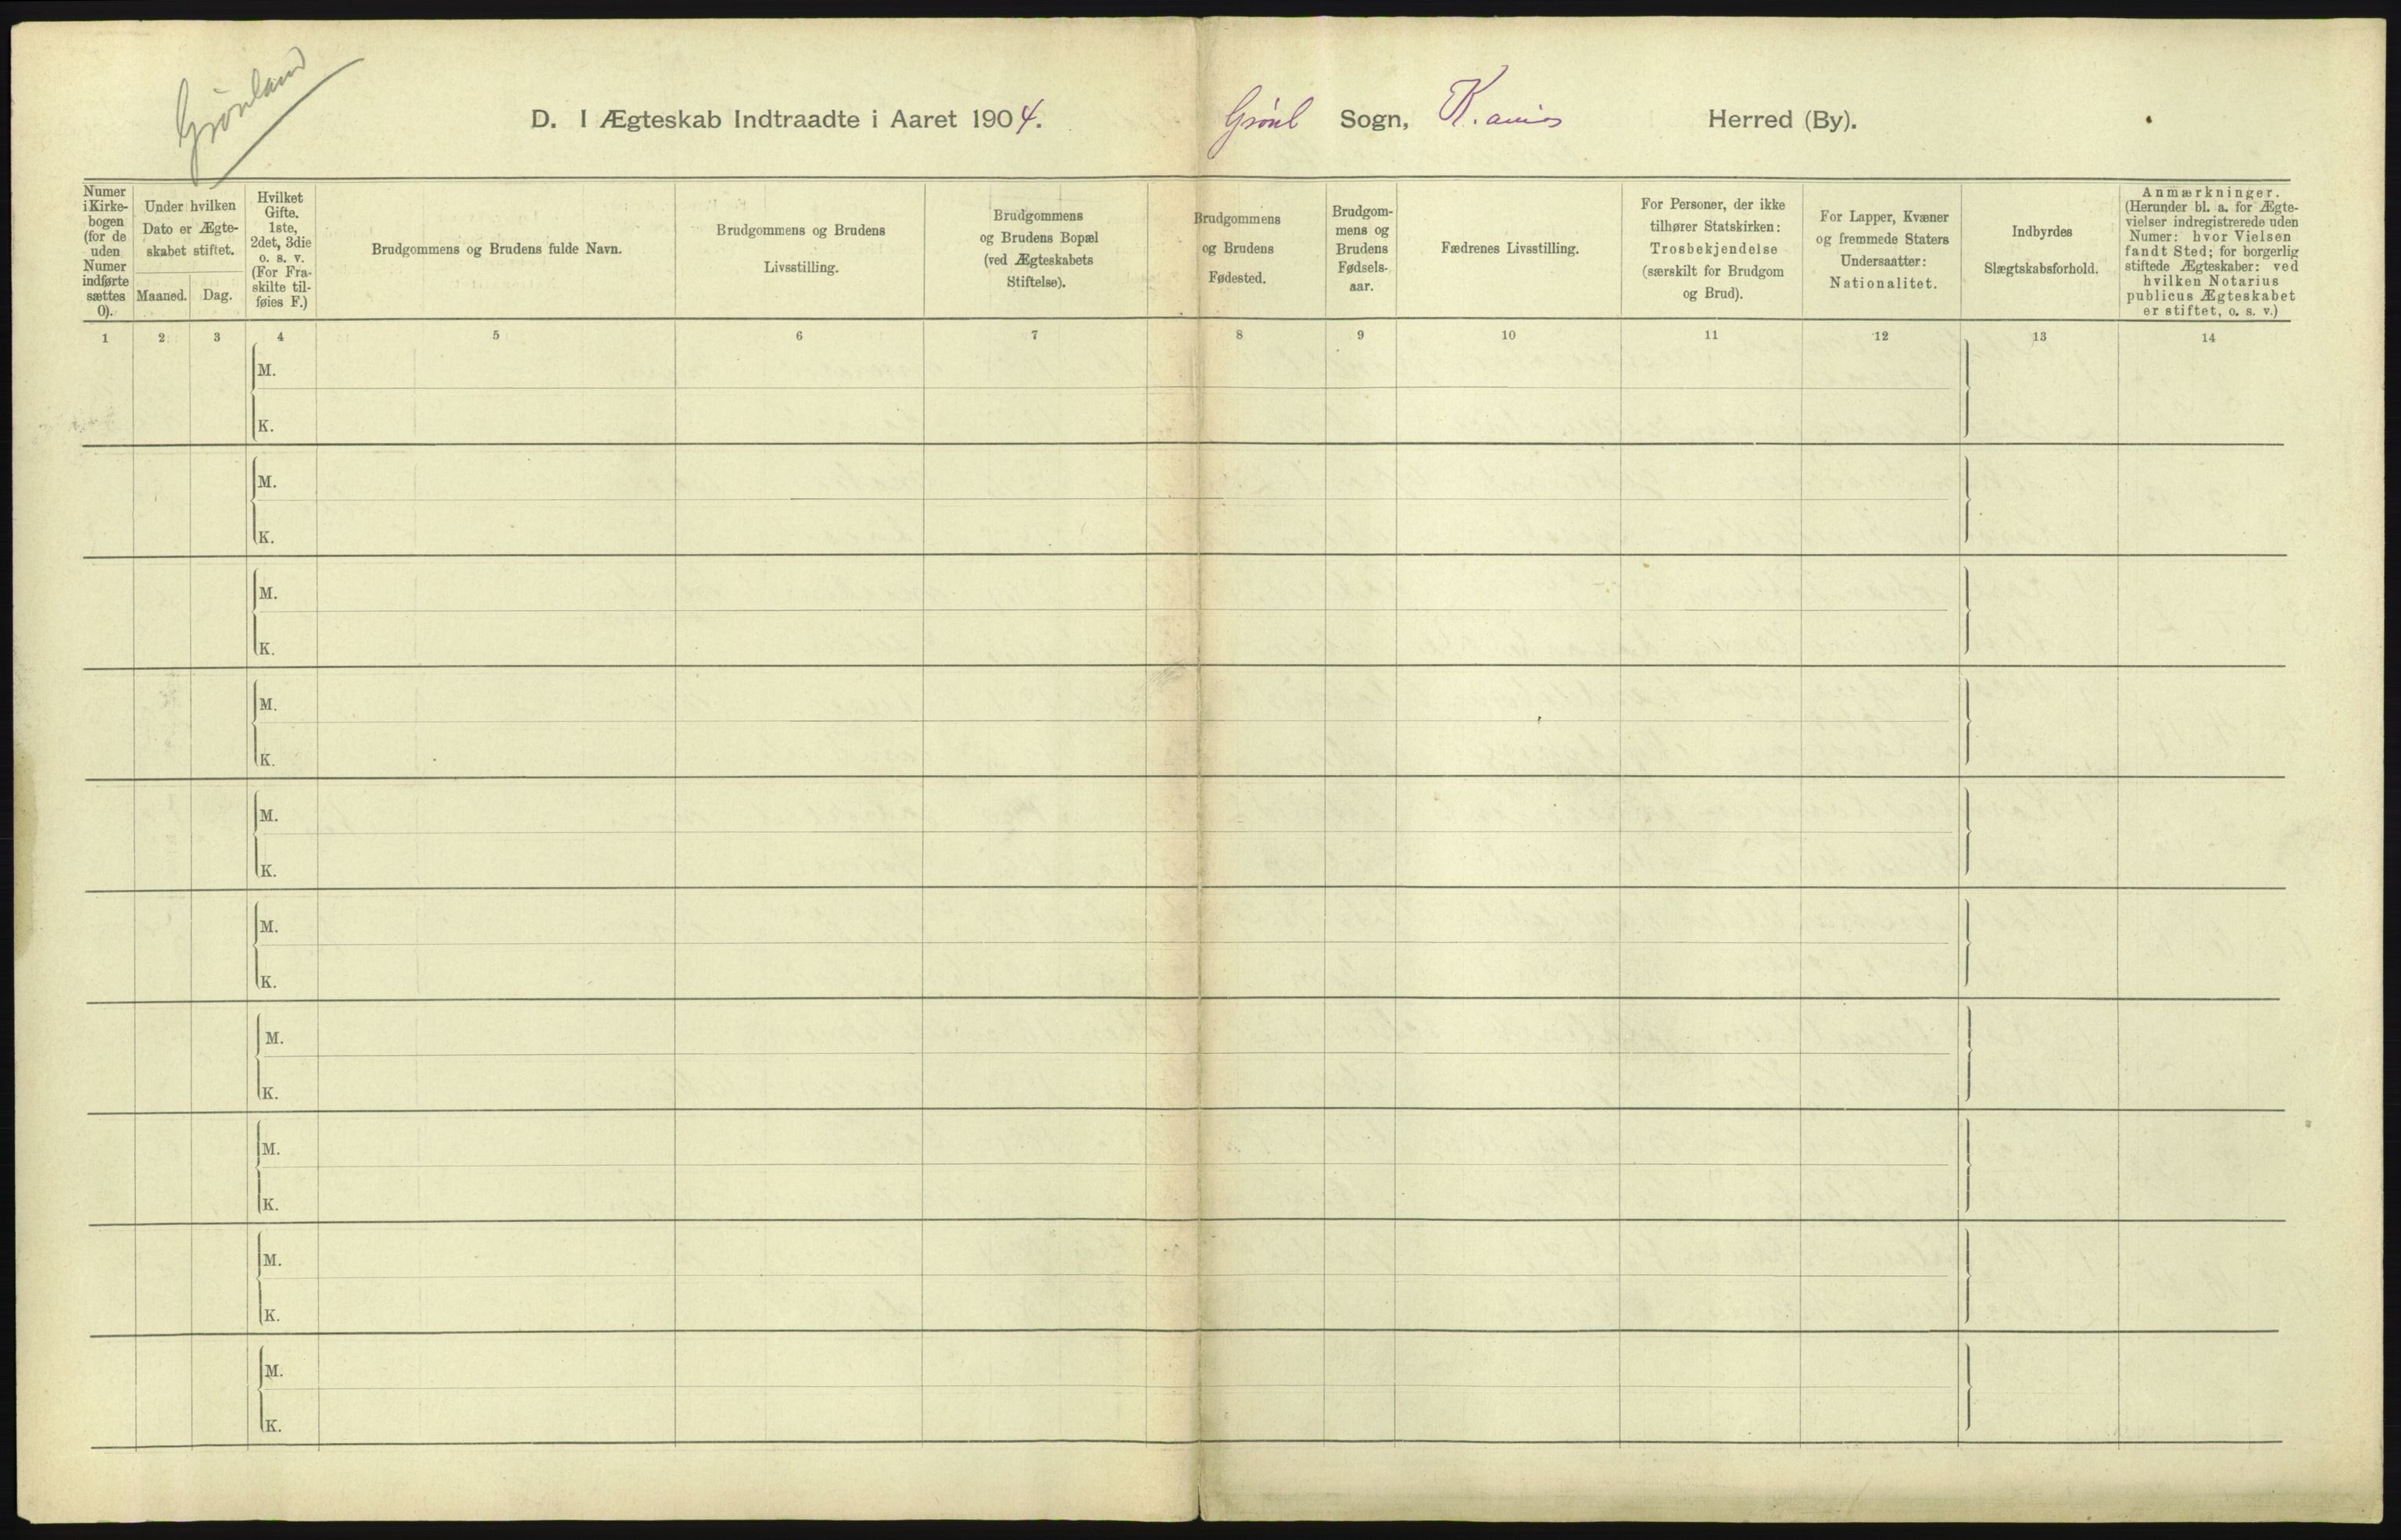 Grönland
D. I Ægteskab Indtraadte i Aaret 1904.
Grönl Sogn, Herred (By).
Numer
i Kirke-
bogen
(for de
uden
Numer
indførte
sættes
0).
Under hvilken
Dato er Ægte-
skabet stiftet.
Maaned. Dag.
Hvilket
Gifte.
1ste,
2det, 3die
o. s. v.
(For Fra-
skilte til-
føies F.)
Brudgommens og Brudens fulde Navn.
Brudgommens og Brudens
Livsstilling.
Brudgommens
og Brudens Bopæl
(ved Ægteskabets
Stiftelse).
Brudgommens
og Brudens
Fødested.
Brudgom-
mens og
Brudens
Fødsels-
aar.
Fædrenes Livsstilling.
For Personer, der ikke
tilhører Statskirken:
Trosbekjendelse
(særskilt for Brudgom
og Brud).
For Lapper, Kvæner
og fremmede Staters
Undersaatter:
Nationalitet.
Indbyrdes
Slægtskabsforhold.
Anmærkninger.
(Herunder bl. a. for Ægte-
vielser indregistrerede uden
Numer: hvor Vielsen
fandt Sted; for borgerlig
stiftede Ægteskaber: ved
hvilken Notarius
publicus Ægteskabet
er stiftet, o. s. v.)
1 2 3 4 5 6 7 8 9 10 11 12 13 14
M.
K.
M.
K.
M.
K.
M.
K.
M.
K.
M.
K.
M.
K.
M.
K.
M.
K.
M.
K.